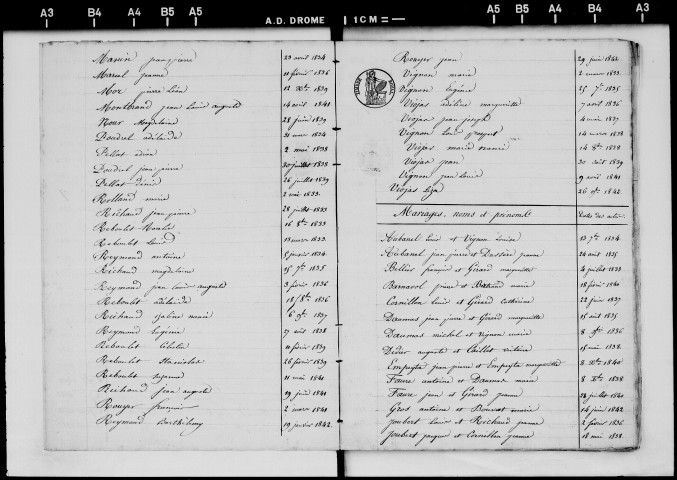 A3 B4 A4 B5 A5 A.D. DROME 1 CM = A5 B5 A4 B4 A3
Manin jean pierre 23 avril 1834
Marcel jeanne 11 février 1836
Mor pierre Léon 12 Xbre 1839
Montbrand jean Louis auguste 14 août 1841
Nour Magdelaine 28 juin 1839
Poudrel adélaïde 31 mars 1834
Pellat 2 mai 1838
Poudrel jean pierre 30 juillet 1838
Pellat 26 juillet 1839
Rolland marie 2 mai 1833
Richaud jean pierre 28 juillet 1833
Reboulet Rosalie 16 8bre 1833
Reboulet Louis 13 mars 1833
Reymond antoine 5 janvier 1834
Richaud magdelaine 25 7bre 1835
Reymond jean Louis auguste 3 février 1836
Reboulet adélaïde 18 8bre 1836
Richaud Sabine marie 6 9bre 1837
Reymond Eugénie 27 août 1838
Reboulet Célestin 11 février 1839
Reboulet Stanislas 26 février 1839
Reboulet Suzanne 11 mai 1841
Richaud jean auguste 29 juin 1841
Rouyer françois 2 mars 1841
Reymond Barthélemy 19 janvier 1842
Rouyer jean 29 juin 1842
Vignon marie 2 mars 1833
Vignon Eugène 25 7bre 1835
Viojas adeline marguerite 7 avril 1836
Viojas jean joseph 4 mai 1837
Vignon Louis 14 mars 1838
Viojas marie 14 8bre 1838
Viojas jean 30 août 1839
Vignon jean Louis 9 avril 1841
Viojas 26 9bre 1842
Mariages, noms et prénoms Dates des actes
Aubanel Louis et Vignon Louise 13 7bre 1834
Aubanel jean pierre et Dussère jeanne 24 août 1835
Bellier françois et Girard marguerite 4 juillet 1833
Barnavol pierre et Bertrand marie 18 février 1840
Cornillon Louis et Girard Catherine 22 juin 1837
Daumas jean pierre et Girard marguerite 15 août 1835
Daumas michel et Vignon marie 8 9bre 1836
Didier auguste et Caillet victoire 15 mai 1838
Empeyta jean pierre et Empeyta marguerite 8 Xbre 1840
Faure antoine et Daumas marie 8 Xbre 1838
Faure jean et Girard jeanne 28 juillet 1840
Gros antoine et Bouvat marie 14 juin 1842
Joubert Louis et Richaud jeanne 2 février 1836
Joubert jacques et Cornillon jeanne 18 mai 1838